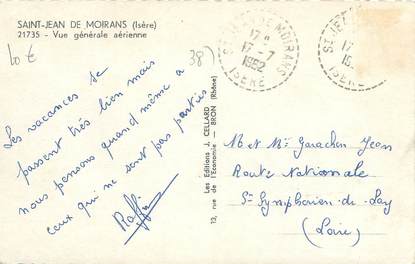 SAINT-JEAN DE MOIRANS (Isère)
21735 - Vue générale aérienne
10 €
38)
Les vacances se
passent très bien mais
nous pensons quand même a
ceux qui ne sont pas partis
Raffin
13, rue de l'Economie - BRON (Rhône)
Les Editions J. CELLARD
ST JEAN DE MOIRANS
17 H
17-7
1952
ISÈRE
ST JE
17
19
ISÈRE
M et Me Garachon Jean
Route Nationale
St Symphorien-de-Lay
(Loire)